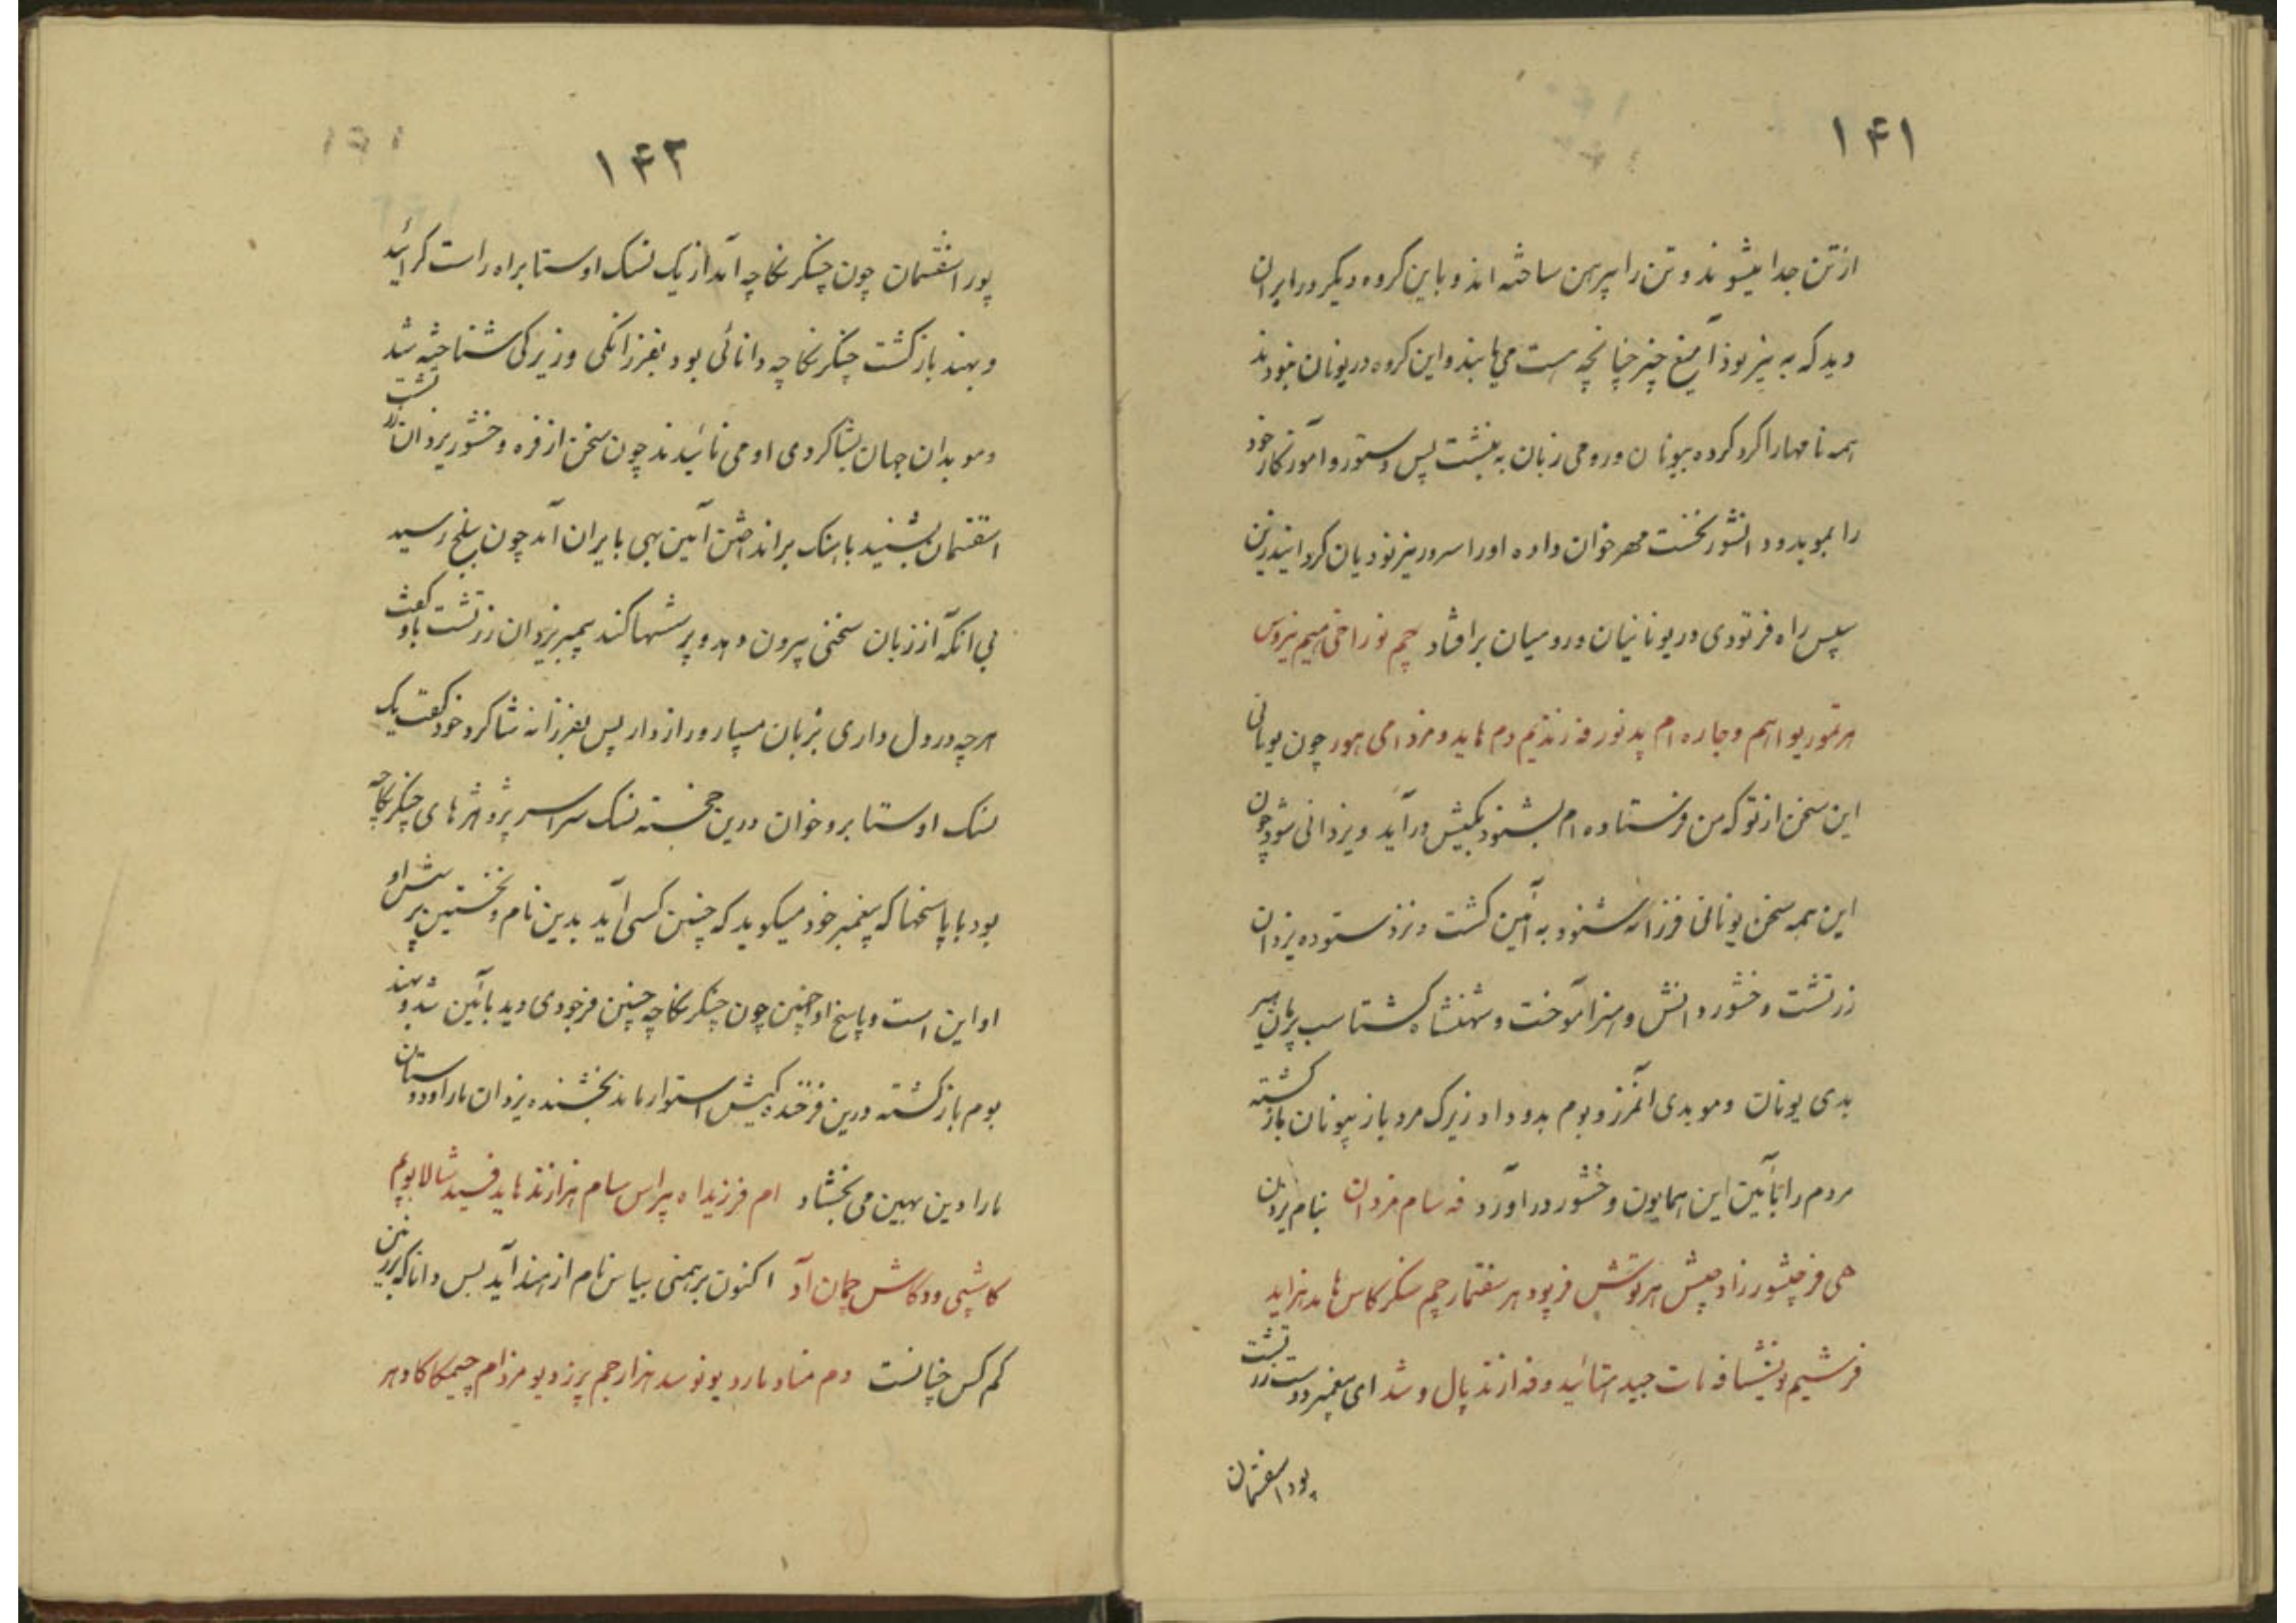 ۱۴۱
از تن جدا میشوند و تن را پیرهن ساخته اند و با این گروه دیگر در ایران
دید که به نیر نود آمیغ چیز چنانچه هست می یابند و این گروه در یونان نبودند
همه نامها را گرد کرده بیونان و رومی زبان به نبشت پس دستور و آموزگار خود
را بموبد و دانشور نخست مهر خوان داده او را سرور نیر نودیان گردانید زین
سپس راه فرتودی در یونانیان و رومیان بر افتاد چم نور اخی هیم نیروس
هر تمور یو ا هم و جاره ام پد نور فه زندیم دم هاید و مزدامی هور چون یونانی
این سخن از تو که من فرستاده ام بشنود بکیش در آید و یزدانی شود چون
این همه سخن یونانی فرزانه شنود به آئین گشت و نزد ستوده یزدان
زرتشت وخشور دانش و هنر آموخت و شهنشاه گشتاسب هیر
بدی یونان و موبدی آنمرز و بوم بدو داد زیرک مرد باز بیونان باز گشته
مردم را بآئین این همایون وخشور در آورد فه سام مزدان بنام یزدان
هی فرجیشور زاد جیش هرتوش فرپود هر سفتمار چم سنکرکاس هامد هزاید
فرشیم و نیشا فه نات جید استائید و فه ارند پال و شد ای پیغمبر دوست زرتشت
پور اسفنتمان
۱۴۲
پور اسفنتمان چون چنکرنگاچه آمد از یک نسک اوستا براه راست گرائید
و بهند باز گشت چنکرنگاچه دانائی بود بفرزانگی و زیرکی شناخته شد
و موبدان جهان بشاگردی او می نائیدند چون سخن از فره وخشور یزدان زرتشت
اسفنتمان بشنید باهنگ بر انداختن آئین بهی بایران آمد چون ببلخ رسید
بی آنکه از زبان سخنی بیرون دهد و پرسشها کند پیمبر یزدان زرتشت باو گفت
هرچه در دل داری بزبان مسپار و راز دار پس بفرزانه شاگرد خود گفت یک
نسک اوستا برو خوان درین خجسته نسک سراسر پژوهشهای چنکرنگاچه
بود با پاسخها که پیغمبر خود میگوید که چنین کسی آید بدین نام و نخستین پرسش او
او این است و پاسخ او چنین چون چنکرنگاچه چنین فرجودی دید بآئین شد و بهند
بوم باز گشته درین فرخنده کیش استوار ماند بخشنده یزدان ما را و دوستان
ما را دین بهین می بخشاد ام فرزیدا ه پیراس سام هزارند هاید فسید شالابویم
کاشپی و دکاش جمان آد اکنون برهمنی بیاس نام از هند آید بس دانا که بر زمین
کم کس چنانست دم مناد مارد یو نوسد هزار جم پرز دیو مزدام چیمکا کاد هر